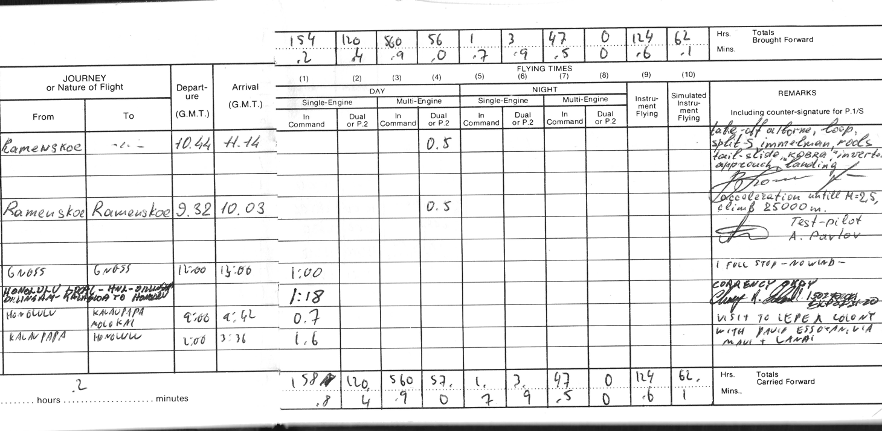 154 120 560 56 1 3 47 0 124 62 Hrs. Totals
.2 .4 .9 .0 .7 .9 .5 0 .6 .1 Mins. Brought Forward
JOURNEY
or Nature of Flight
From To
Depart-
ure
(G.M.T.)
Arrival
(G.M.T.)
FLYING TIMES
(1) (2) (3) (4) (5) (6) (7) (8) (9) (10)
DAY NIGHT
Single-Engine Multi-Engine Single-Engine Multi-Engine
In
Command
Dual
or P.2
In
Command
Dual
or P.2
In
Command
Dual
or P.2
In
Command
Dual
or P.2
Instru-
ment
Flying
Simulated
Instru-
ment
Flying
REMARKS
Including counter-signature for P.1/S
Ramenskoe -"- 10.44 11.14 0.5
take-off airborne, loop,
split-S immelman, rolls
tail-slide, "KOBRA", inverto.
approach, landing
Ramenskoe Ramenskoe 9.32 10.03 0.5
acceleration untill M-2,5,
climb 25000 m.
Test-pilot
A. Pavlov
GNOSS GNOSS 12:00 13:00 1:00 1 FULL STOP - NO WIND -
HONOLULU LOCAL - HNL - DILLINGHAM
DILINGAM - KALAELOA TO HONOLULU 1:18 CURRENCY OKAY
HONOLULU KALAUPAPA
MOLOKAI 9:00 9:42 0.7 VISIT TO LEPER COLONY
KALAUPAPA HONOLULU 2:00 3:36 1.6 WITH DAVID ESSOYAN, VIA
MAUI + LANAI
158 120. 560 57. 1. 3. 47 0 124 62. Hrs. Totals
.8 4 .9 0 7 .9 .5 0 .6 1 Mins. Carried Forward
.2
hours minutes